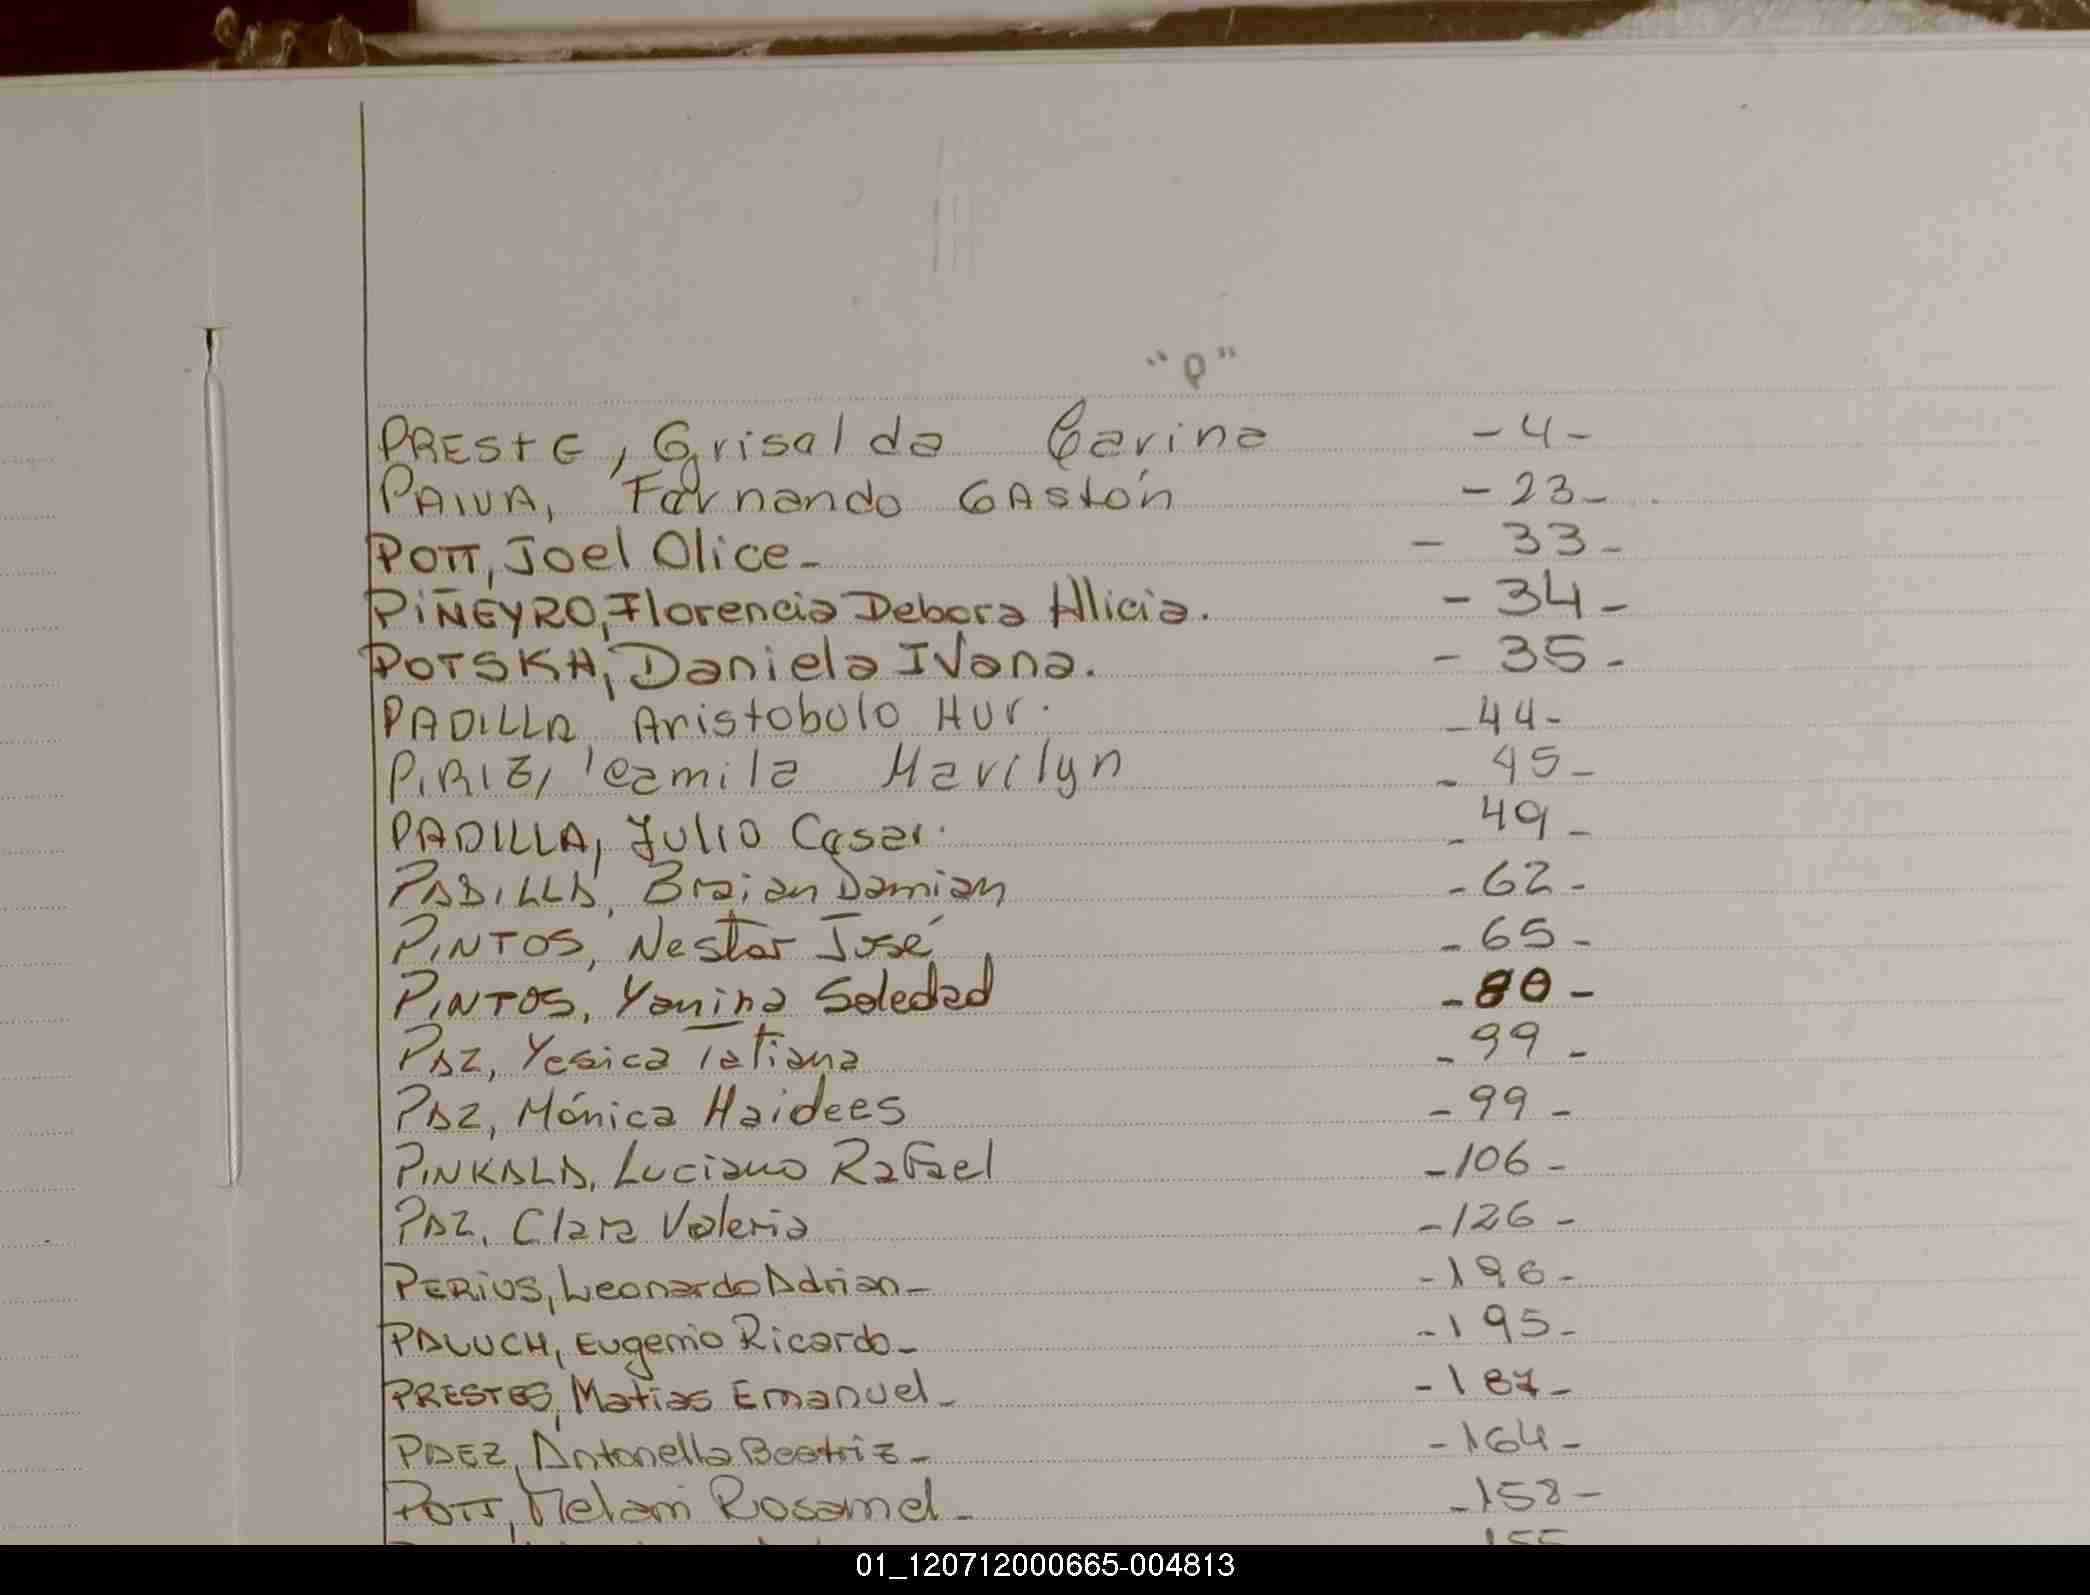 "P"
PRESTE, Griselda Carina -4-
PAIVA, Fernando GAStón -23-
POTT, Joel Olice- - 33-
PIÑEYRO, Florencia Debora Alicia. - 34-
POTSKA, Daniela IVana. - 35-
PADILLA, Aristobulo HUr. -44-
PIRIZ, Camila Marilyn - 45-
PADILLA, Julio Cesar. - 49-
PADILLA, Braian Damian - 62-
PINTOS, Nestor José - 65-
PINTOS, Yanina Soledad - 80-
PAZ, Yesica Tatiana - 99-
PAZ, Mónica Haidees - 99-
PINKALA, Luciano Rafael -106-
PAZ, Clara Valeria -126-
PERIUS, Leonardo Adrian- -196-
PALUCH, Eugenio Ricardo- -195-
PRESTES, Matias Emanuel- -187-
PAEZ, Antonella Beatriz- -164-
POTT, Melani Rosamel- -158-
155
01_120712000665-004813